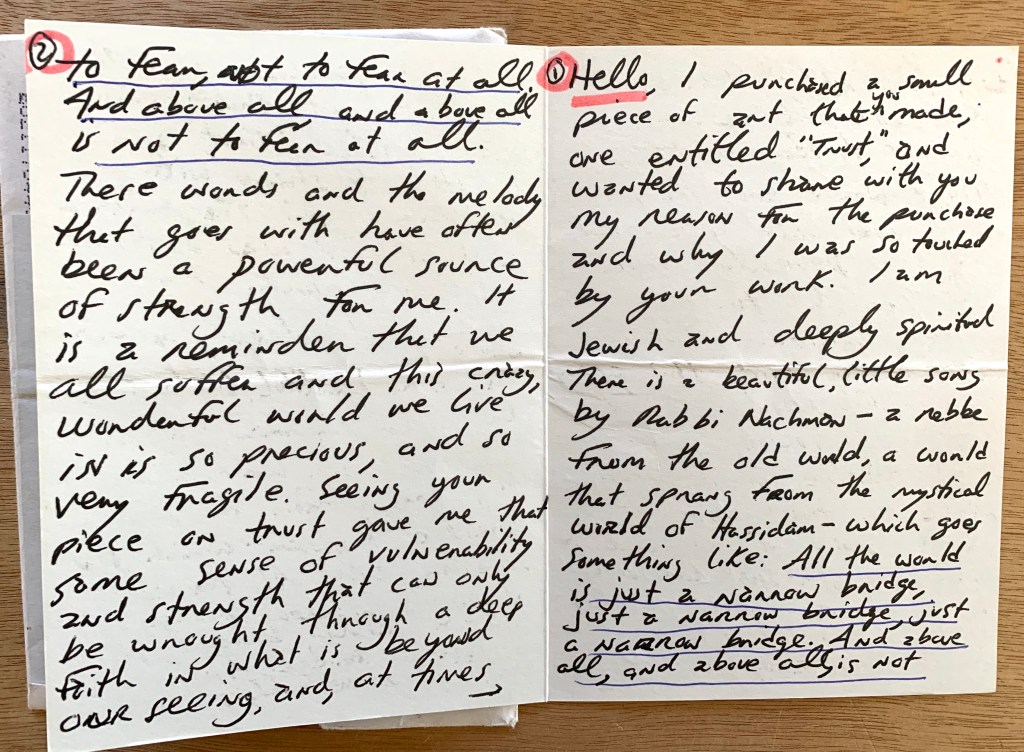 ①
Hello, I purchased a small
piece of art that you made,
one entitled "Trust," and
wanted to share with you
my reason for the purchase
and why I was so touched
by your work. I am
Jewish and deeply spiritual
There is a beautiful, little song
by Rabbi Nachman – a rebbe
from the old world, a world
that sprang from the mystical
world of Hassidam – which goes
something like: All the world
is just a narrow bridge,
just a narrow bridge, just
a narrow bridge. And above
all, and above all, is not
②
to fear, not to fear at all.
And above all, and above all
is not to fear at all.
These words and the melody
that goes with have often
been a powerful source
of strength for me. It
is a reminder that we
all suffer and this crazy,
wonderful world we live
in is so precious, and so
very fragile. Seeing your
piece on trust gave me that
same sense of vulnerability
and strength that can only
be wrought through a deep
faith in what is beyond
our seeing, and, at times →